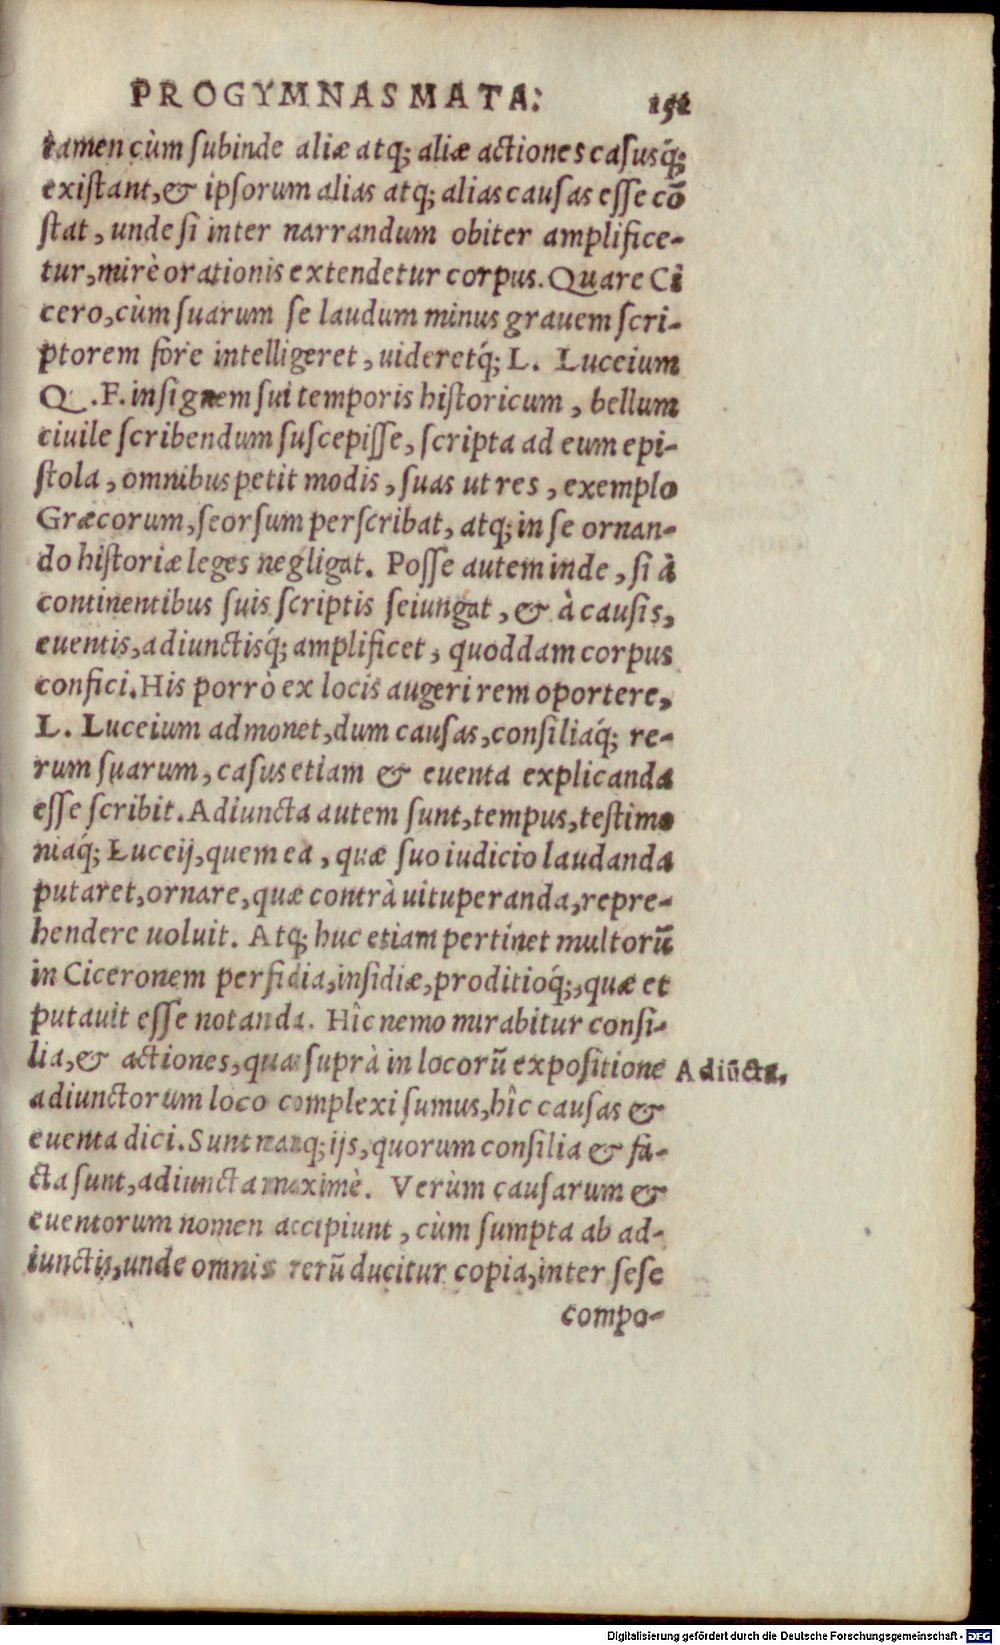 PROGYMNASMATA: 152
tamen cùm subinde aliæ atq; aliæ actiones casusq́;
existant, & ipsorum alias atq; alias causas esse cō
stat, unde si inter narrandum obiter amplifice-
tur, mirè orationis extendetur corpus. Quare Ci
cero, cùm suarum se laudum minus grauem scri-
ptorem fore intelligeret, uideretq́; L. Luceium
Q. F. insignem sui temporis historicum, bellum
ciuile scribendum suscepisse, scripta ad eum epi-
stola, omnibus petit modis, suas ut res, exemplo
Græcorum, seorsum perscribat, atq; in se ornan-
do historiæ leges negligat. Posse autem inde, si à
continentibus suis scriptis seiungat, & à causis,
euentis, adiunctisq́; amplificet, quoddam corpus
confici. His porrò ex locis augeri rem oportere,
L. Luceium admonet, dum causas, consiliaq́; re-
rum suarum, casus etiam & euenta explicanda
esse scribit. Adiuncta autem sunt, tempus, testimo
niaq́; Luceij, quem ea, quæ suo iudicio laudanda
putaret, ornare, quæ contrà uituperanda, repre-
hendere uoluit. Atq; huc etiam pertinet multorū
in Ciceronem perfidia, insidiæ, proditioq́;, quæ et
putauit esse notanda. Hîc nemo mirabitur consi-
lia, & actiones, quas suprà in locorū expositione
Adiūcta.
adiunctorum loco complexi sumus, hîc causas &
euenta dici. Sunt nanq; ijs, quorum consilia & fa-
cta sunt, adiuncta maximè. Verùm causarum &
euentorum nomen accipiunt, cùm sumpta ab ad-
iunctis, unde omnis rerū ducitur copia, inter sese
compo-
Digitalisierung gefördert durch die Deutsche Forschungsgemeinschaft - DFG